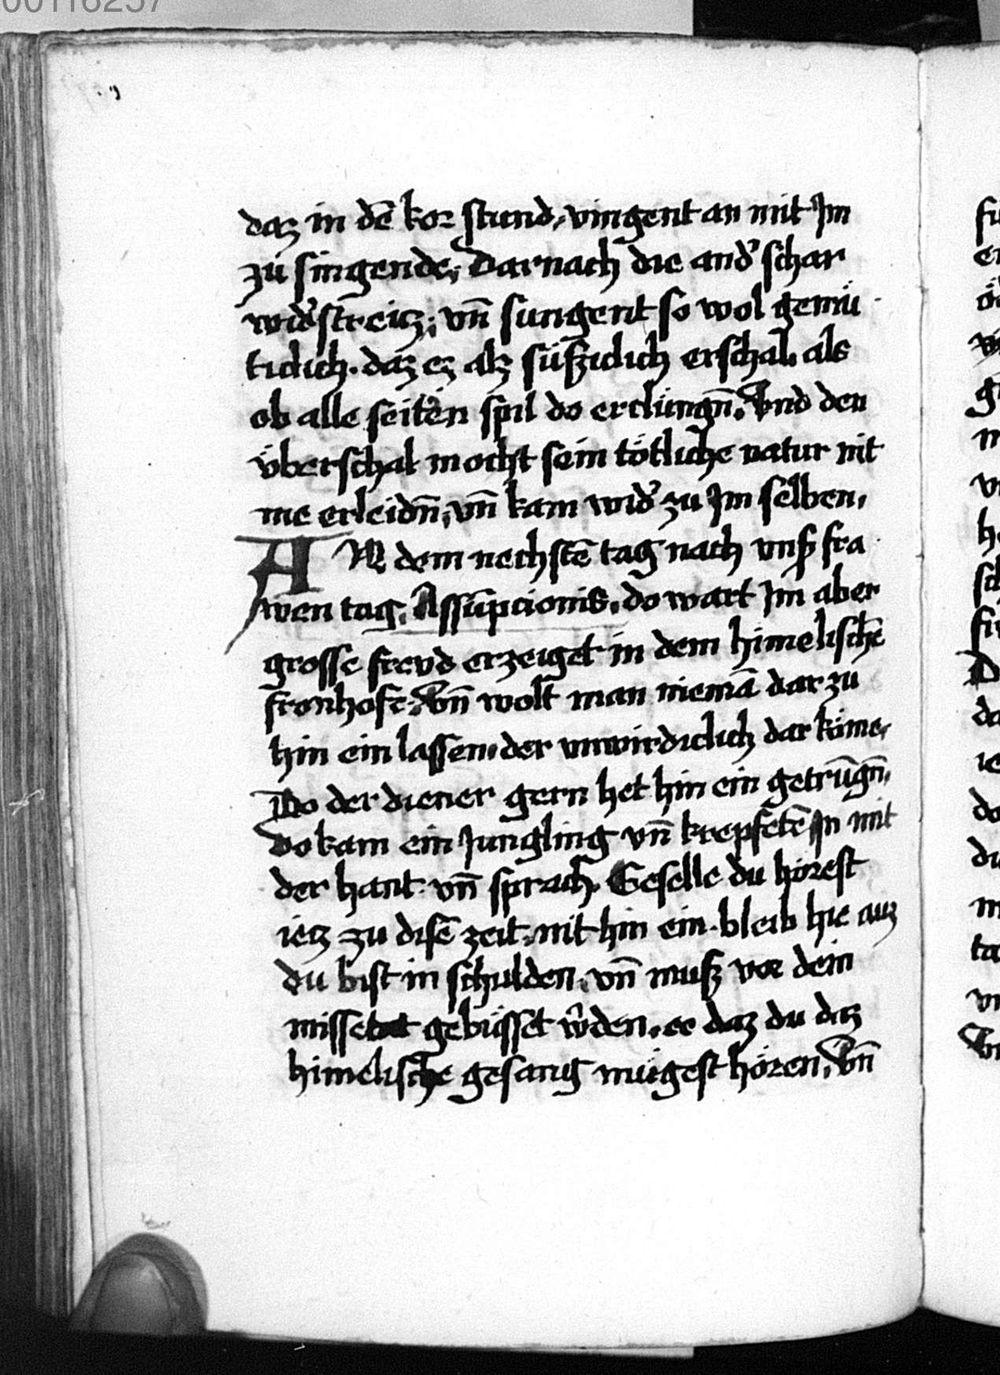 00116257
daz in dē kor stund, vingent an mit Jm
zů singende, Darnach die and' schar
wid'streitz, vn̄ sungent so wol gemů
ticlich. daz ez alz sůsziclich erschal, als
ob alle seiten spil do erclůngn̄. Vnd den
v̈berschal mocht sein tötliche natur nit
me erleidn̄, vn̄ kam wid' zu Jm selben,
AN dem nechstē tag nach vns' fra
wen tag, Assūpcionis, do wart Jm aber
grosse frevd erzeiget in dem himelischē
fronhofe, Vn̄ wolt man niemā dar zů
hin ein lassen, der vnwirdiclich dar köme,
Do der diener gern het hin ein getrūgn̄,
Do kam ein Jungling vn̄ krepfetē Jn mit
der hant. vn̄ sprach, Geselle du hörest
ietz zu disē zeit, nit hin ein. bleib hie auz
du bist in schulden, vn̄ musz vor dein
missetat gebüsset w'den, ee daz du daz
himelische gesang mügest hören, Vn̄